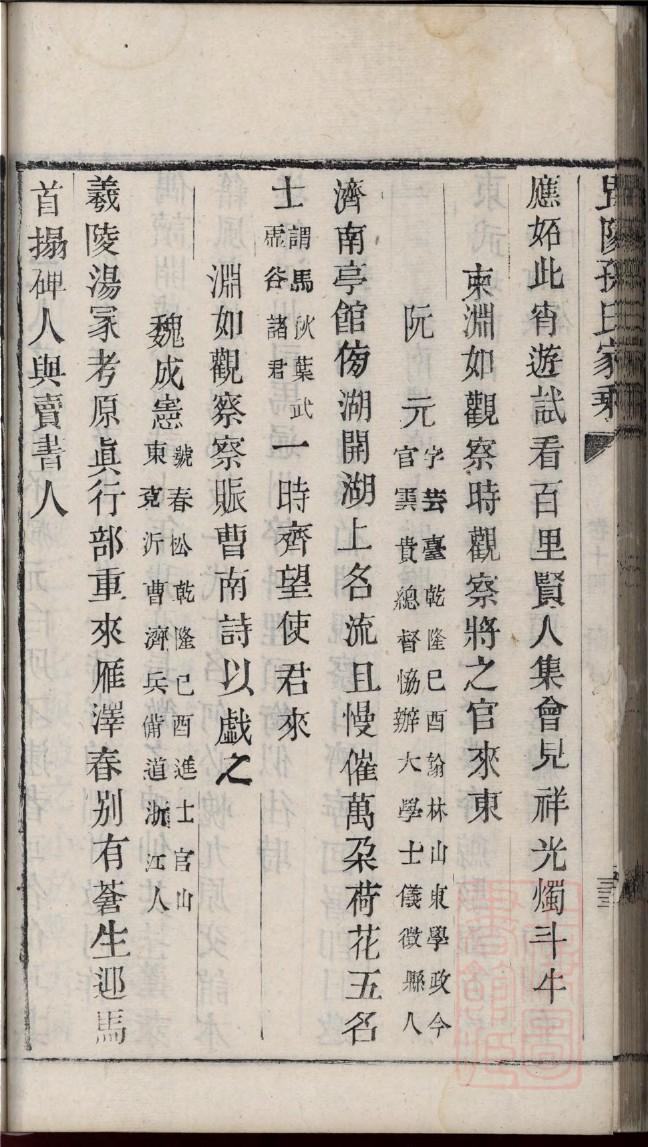 毘陵孫氏家乘
應妬此宵遊試看百里賢人集會見祥光燭斗牛
柬淵如觀察時觀察將之官來東
阮元字芸臺乾隆己酉翰林山東學政今
官雲貴總督恊辦大學士儀徵縣人
濟南亭館傍湖開湖上名流且慢催萬朶荷花五名
士謂馬秋葉武
虛谷諸君一時齊望使君來
淵如觀察察賑曹南詩以戯之
魏成憲號春松乾隆己酉進士官山
東兗沂曹濟兵備道浙江人
羲陵湯冢考原眞行部重來雁澤春别有蒼生迎馬
首搨碑人與賣書人